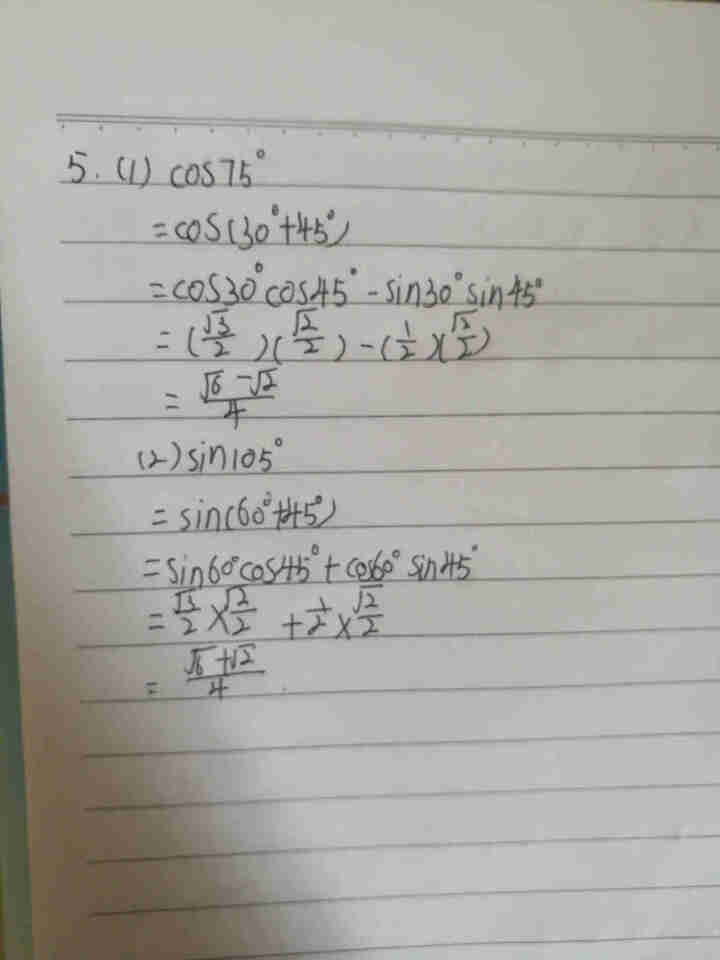 5. (1) cos75°
=cos(30°+45°)
=cos30°cos45°-sin30°sin45°
=(√3/2)(√2/2)-(1/2)(√2/2)
=(√6-√2)/4
(2) sin105°
=sin(60°+45°)
=sin60°cos45°+cos60°sin45°
=√3/2×√2/2+1/2×√2/2
=(√6+√2)/4